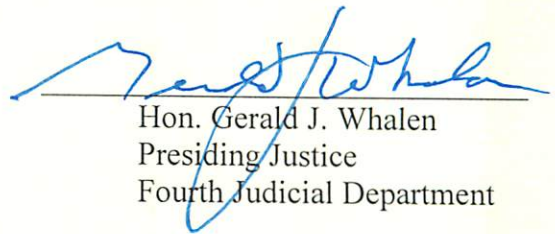 Gerald J Whalen
Hon. Gerald J. Whalen
Presiding Justice
Fourth Judicial Department